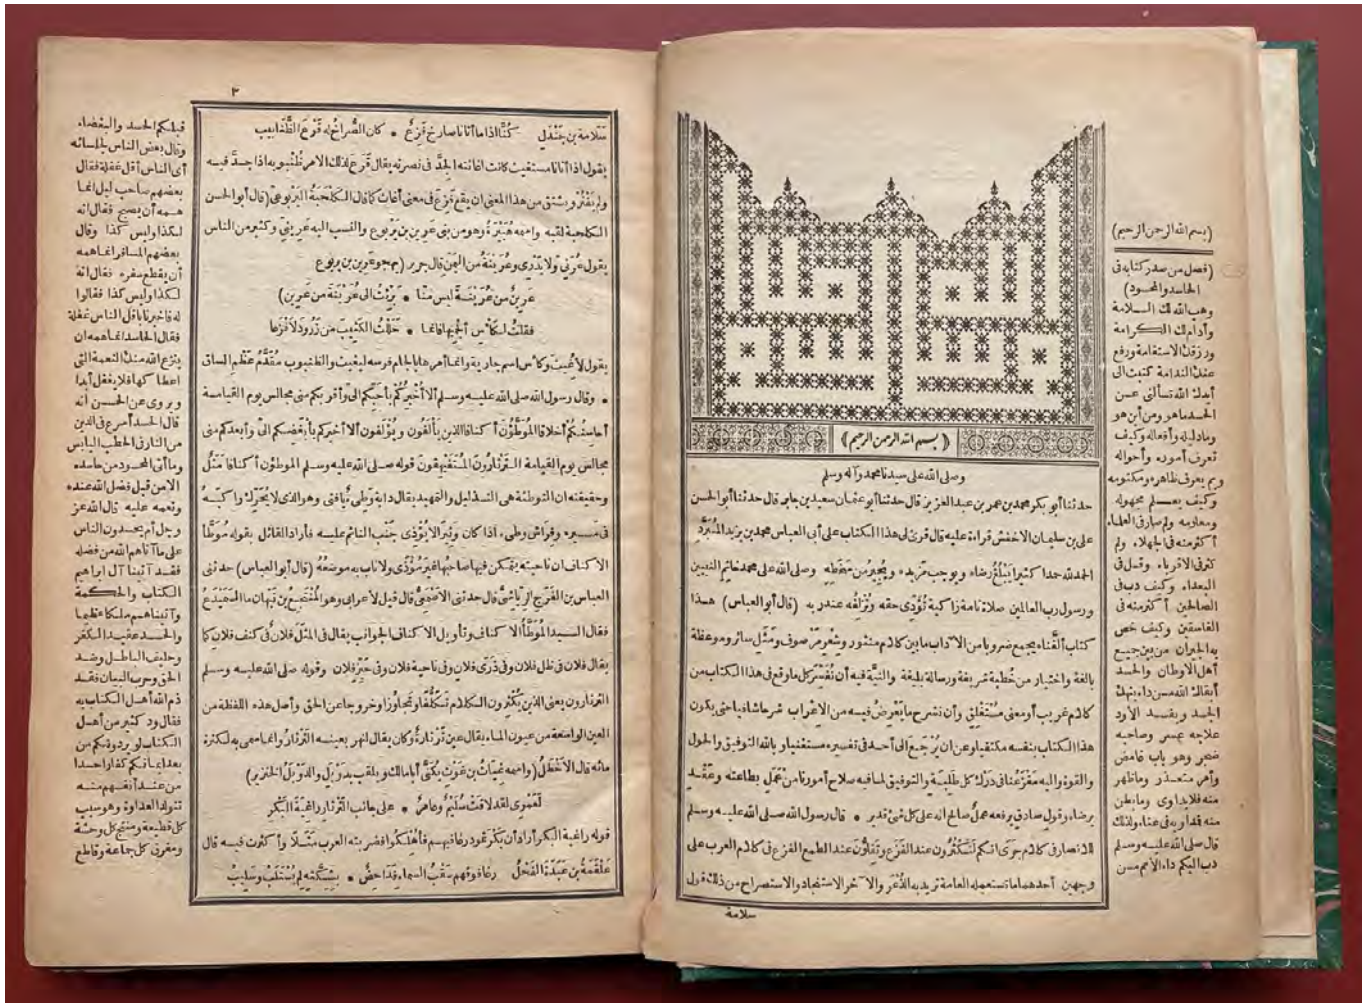 (بسم الله الرحمن الرحيم)
وصلى الله على سيدنا محمد وآله وسلم
حدثنا أبو بكر محمد بن عمر بن عبد العزيز قال حدثنا أبو عثمان سعيد بن جابر قال حدثنا أبو الحسن
على بن سليمان الاخفش قراءة عليه قال قرئ لى هذا الكتاب على أبى العباس محمد بن يزيد المُبَرَّد
الحمد لله حمدا كثيرا يَبْلُغُ رضاه ويوجب مزيده ويُجيرُ من سَخَطِه وصلى الله على محمد خاتم النبيين
ورسول رب العالمين صلاة تامة زاكية تُؤَدِّى حقه وتُزْلِفُه عند ربه (قال أبو العباس) هذا
كتاب ألّفناه يجمع ضروبا من الآداب ما بين كلام منثور وشِعْر مَرْصوف ومَثَل سائر وموعظة
بالغة واختيار من خُطبة شريفة ورسالة بليغة والنيَّة فيه أن نُفَسِّرَ كل ما وقع فى هذا الكتاب من
كلام غريب أو معنى مُسْتَغلِق وأن نشرح ما يَعْرِضُ فيه من الاعراب شرحا شافيا حتى يكون
هذا الكتاب بنفسه مكتفيا وعن ان يُرْجَعَ الى أحد فى تفسيره مستغنيا وبالله التوفيق والحول
والقوة واليه مَفْزَعُنا فى دَرَك كل طَلِبَة والتوفيق لما فيه صلاح أمورنا من عَمَل بطاعته وعَقْد
برضاه وقول صادق يرفعه عملٌ صالح انه على كل شئ قدير • قال رسول الله صلى الله عليه وسلم
للانصار فى كلام جَرَى انكم لَتَكْثُرُون عند الفَزَع وتَقِلُّون عند الطمع الفزع فى كلام العرب على
وجهين أحدهما ما تستعمله العامة تريد به الذُّعْر والآخر الاستنجاد والاستصراخ من ذلك قول
سلامة
(بسم الله الرحمن الرحيم)
(فصل من صدر كتابه فى
الحاسد والمحسود)
وهب الله لك السلامة
وأدام لك الكرامة
ورزقك الاستقامة ورفع
عنك الندامة كتبت الى
أيدك الله تسألنى عن
الحسد ما هو ومن أين هو
وما دليله وأفعاله وكيف
تعرف أموره وأحواله
وبم يعرف ظاهره ومكتومه
وكيف يعلم مجهوله
ومعلومه ولم صار فى العلماء
أكثر منه فى الجهلاء ولم
كثر فى الاقرباء وقل فى
البعداء وكيف دب فى
الصالحين أكثر منه فى
الفاسقين وكيف خص
به الجيران من بين جميع
أهل الاوطان والحسد
أبقاك الله من داء ينهك
الجسد ويفسد الاود
علاجه عسر وصاحبه
ضجر وهو باب غامض
وأمر متعذر وما ظهر
منه فلا يداوى وما بطن
منه فداويه فى عناء ولذلك
قال صلى الله عليه وسلم
دب اليكم داء الأمم من
٣
سَلَامة بن جَنْدل كُنَّا اذا ما أتانا صارخ فَزِعٌ • كان الصُّراخُ له قَرْعَ الظَّنابيب
يقول اذا أتانا مستغيث كانت اغاثته الجِدَّ فى نصرته يقال قَرَعَ لذلك الامر ظُنْبُوبه اذا جدَّ فيه
ولم يَفْتُر ويشتق من هذا المعنى ان يقع فَزِعَ فى معنى أغاث كما قال الكَلْحَبَةُ اليَربُوعىّ (قال أبو الحسن
الكلحبة لقبه واسمه هُبَيْرَةُ وهو من بنى عرين بن يربوع والنسب اليه عَرِينِىّ وكثير من الناس
يقول عُرَنِى ولا يَدْرى وعُرَيْنَةُ من اليَمَن قال جرير (يهجو عرين بن يربوع
عَرِينٌ من عُرَيْنَةَ ليس منّا • بَرِئْتُ الى عُرَيْنَةَ من عَرين)
فقلتُ لكَأْسٍ ألجِميها فانما • حَلَلْتُ الكَثِيبَ من زَرُودَ لأَفْزَعا
يقول لأُغيثَ وكأس اسم جارية وانما أمرها بالجام فرسه ليغيث والظنبوب مُقَدَّمُ عَظْم الساق
• وقال رسول الله صلى الله عليه وسلم ألا أُخْبِرُكُمْ بأحبِّكم الىّ وأقربكم منى مجالس يوم القيامة
أحاسنُكُمْ أخلاقا المُوَطَّؤُن أكنافا الذين يأْلَفون ويُؤْلَفون ألا أخبركم بأبغضكم الىّ وأبعدكم منى
مجالس يوم القيامة الثَّرْثارُونَ المُتَفَيْهِقُونَ قوله صلى الله عليه وسلم الموطؤن أكنافا مَثَلٌ
وحقيقته ان التوطئة هى التذليل والتمهيد يقال دابة وَطِىءٌ يا فتى وهو الذى لا يُحَرِّك راكبَهُ
فى مسيره وفِراشٌ وطىء اذا كان وَثِيرًا لا يُؤْذِى جَنْبَ النائم عليه فأراد القائل بقوله مُوَطَّأ
الاكناف ان ناحيته يتمكن فيها صاحبها غيرَ مُؤْذًى ولا ناب به موضعُهُ (قال أبو العباس) حدثنى
العباس بن الفَرَج الرِّياشىّ قال حدثنى الأصْمَعِىّ قال قيل لأعرابى وهو المُنْتَجِع بن نَبْهان ما السَّمَيْدَعُ
فقال السيد المُوَطَّأُ الاكناف وتأويل الاكناف الجوانب يقال فى المثَل فلانٌ فى كنف فلان كما
يقال فلان فى ظل فلان وفى ذَرَى فلان وفى ناحية فلان وفى حَيِّز فلان وقوله صلى الله عليه وسلم
الثرثارون يعنى الذين يُكْثِرون الكلام تَكَلُّفًا وتجاوُزا وخروجا عن الحق وأصل هذه اللفظة من
العين الواسعة من عيون الماء يقال عين ثَرْثارةٌ وكان يقال لنهر بعينه الثَّرْثارُ وانما سمى به لكثرة
مائه قال الأَخْطَلُ (واسمه غِيَاثُ بن غَوْث يُكَنَّى أبا مالك ويلقب بدَوْبَل والدَّوْبَلُ الخنزير)
لَعَمْرِى لقد لاقَتْ سُلَيْم وعامرٌ • على جانب الثَّرْثار راغيةَ البَكْر
قوله راغية البكر أراد أن بَكْرَ ثمود رغا فيهم فأُهْلِكُوا فضربته العرب مَثَلًا وأكثرت فيه قال
عَلْقَمَةُ بن عَبَدَةَ الفَحْلُ رغا فوقهم سَقْبُ السماء فَدَاحِصٌ • بِشِكَّتِه لم يُسْتَلَبْ وسَلِيبُ
قبلكم الحسد والبغضاء
وقال بعض الناس لجلسائه
أى الناس أقل غفلة فقال
بعضهم صاحب ليل انما
همه أن يصبح فقال انه
لكذا وليس كذا وقال
بعضهم المسافر انما همه
أن يقطع سفره فقال انه
لكذا وليس كذا فقالوا
له فأخبرنا بأقل الناس غفلة
فقال الحاسد انما همه ان
ينزع الله منك النعمة التى
اعطاكها فلا يغفل أبدا
ويروى عن الحسن أنه
قال الحسد أسرع فى الدين
من النار فى الحطب اليابس
وما أتى المحسود من حاسده
الا من قبل فضل الله عنده
ونعمه عليه قال الله عز
وجل أم يحسدون الناس
على ما آتاهم الله من فضله
فقد آتينا آل ابراهيم
الكتاب والحكمة
وآتيناهم ملكا عظيما
والحسد عقيد الكفر
وحليف الباطل وضد
الحق وحرب البيان فقد
ذم الله أهل الكتاب به
فقال ود كثير من أهل
الكتاب لو يردونكم من
بعد ايمانكم كفارا حسدا
من عند أنفسهم منه
تتولد العداوة وهو سبب
كل قطيعة ومنتج كل وحشة
ومفرق كل جماعة وقاطع